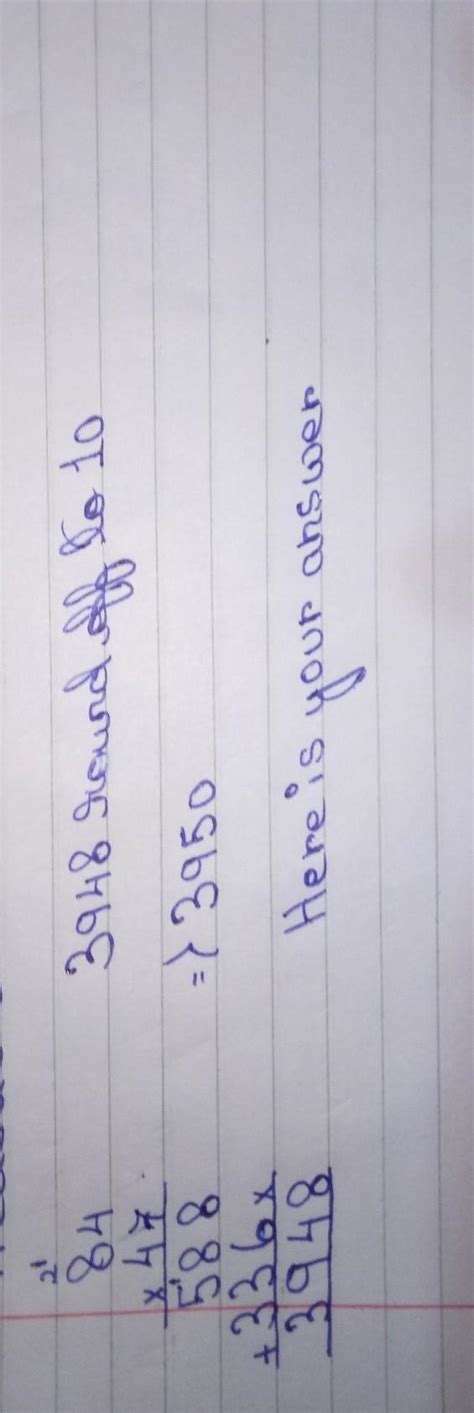 2 1
84
× 47
588
+ 336×
3948
3948 round off to 10
=> 3950
Here is your answer